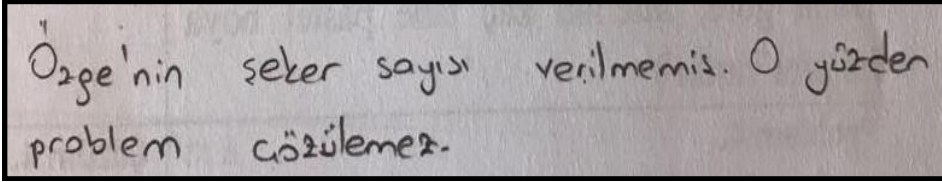 Özge'nin şeker sayısı verilmemiş. O yüzden
problem çözülemez.